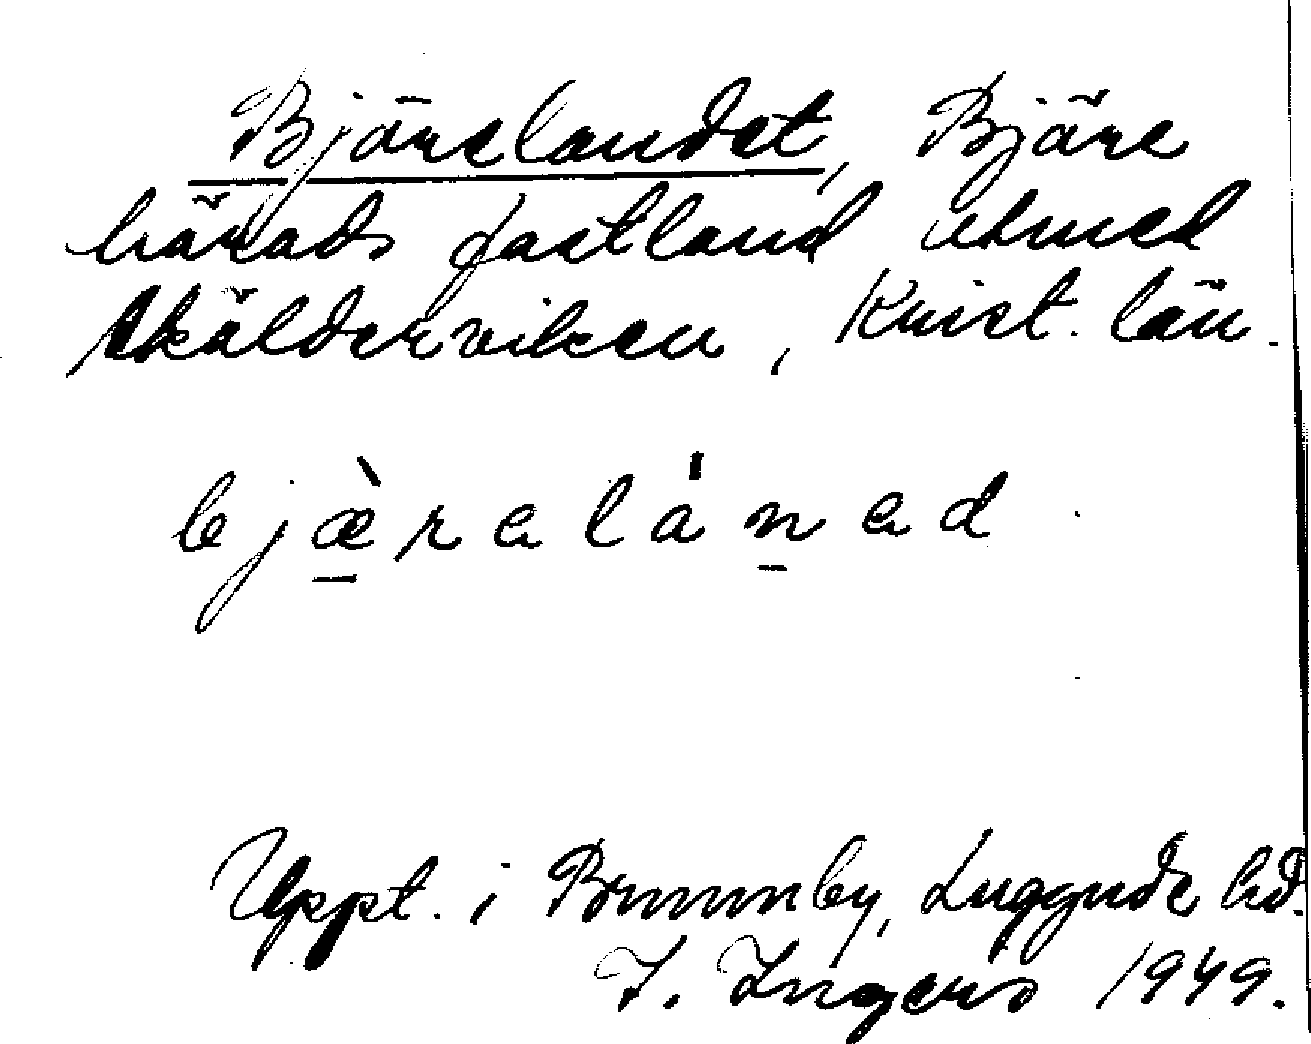 Bjärelandet, Bjäre
härads fastland utmed
Skälderviken, Krist. län.
bjæ̱̀relȧ́ṉed
Uppt. i Brunnby, Luggude hd.
I. Ingers 1949.